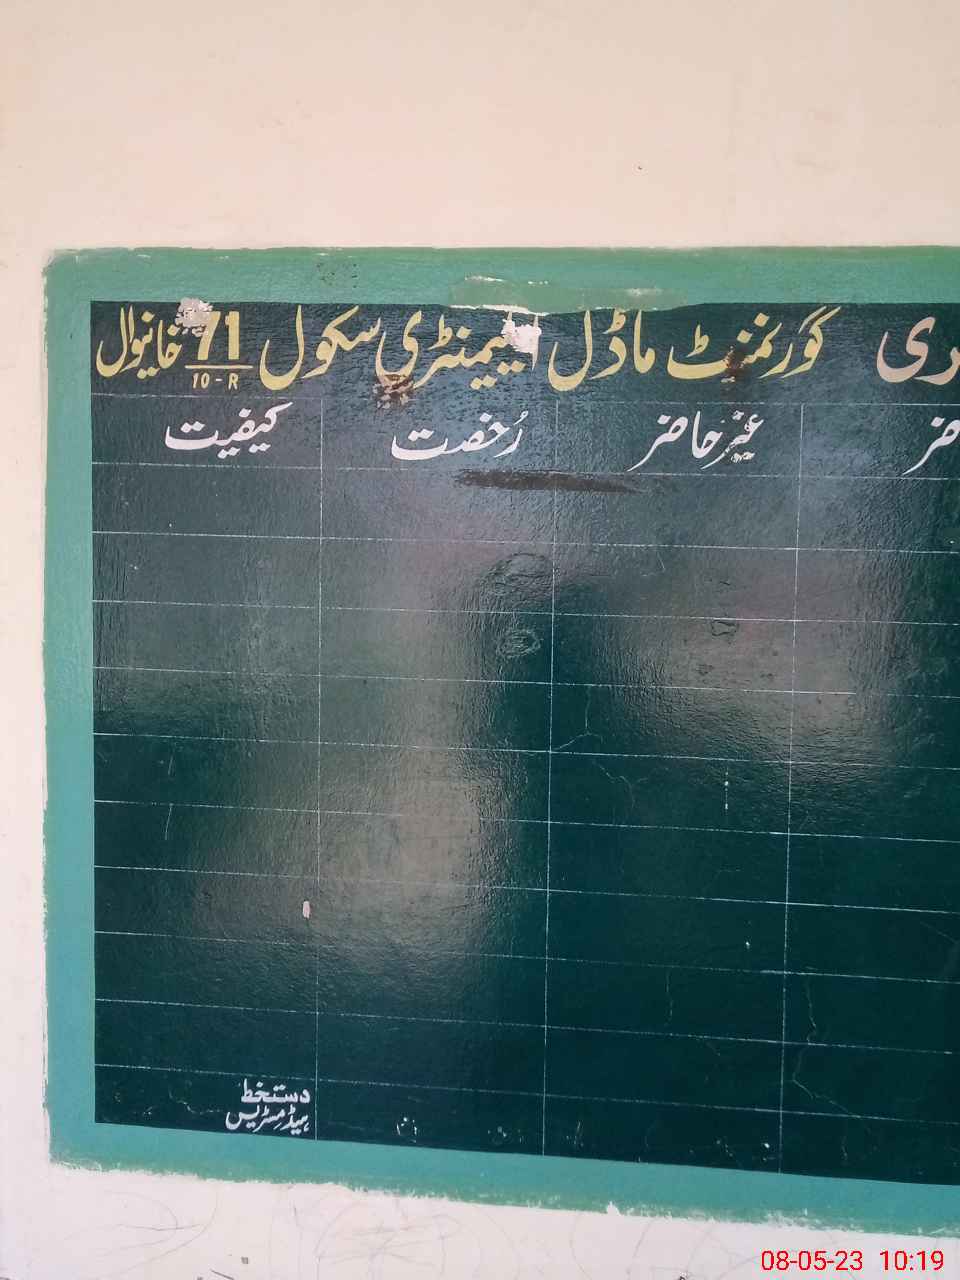 گورنمنٹ ماڈل ایلیمنٹری سکول 71/10-R خانیوال
غیر حاضر رُخصت کیفیت
دستخط
ہیڈ مسٹریس
08-05-23 10:19